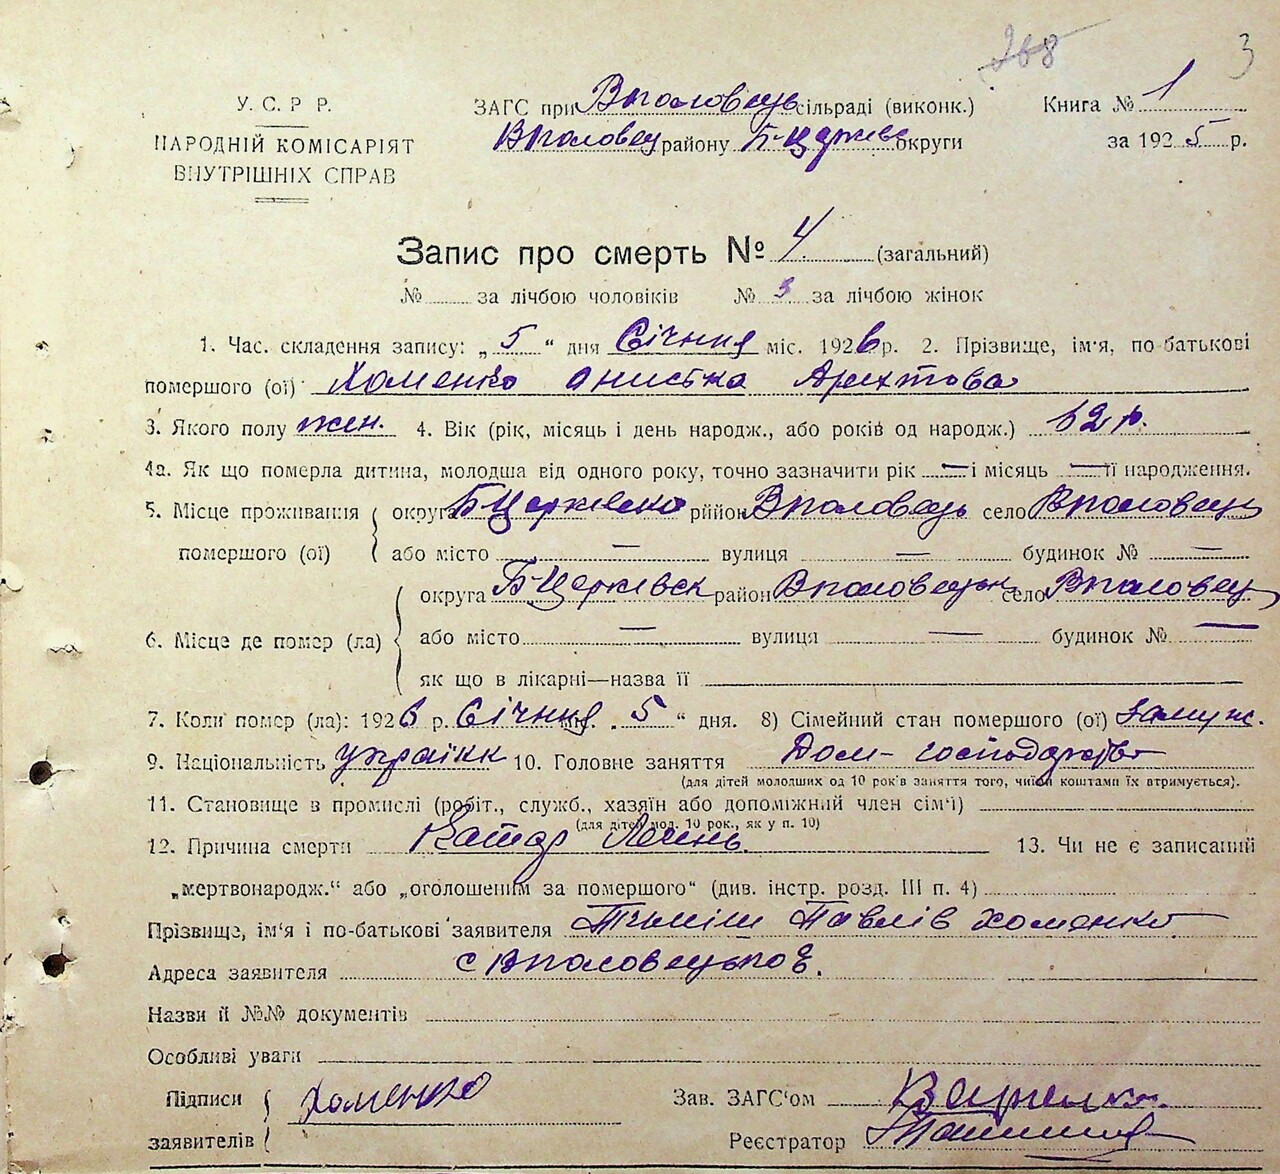 268 3
У. С. Р. Р. ЗАГС при Вполовець сільраді (виконк.) Книга № 1
НАРОДНІЙ КОМІСАРІЯТ Вполовец району Б-Церкве округи за 1925 р.
ВНУТРІШНІХ СПРАВ
Запис про смерть № 4 (загальний)
№ за лічбою чоловіків № 3 за лічбою жінок
1. Час. складення запису: „ 5 “ дня Січння міс. 1926 р. 2. Прізвище, ім'я, по-батькові
помершого (ої) Хоменко
3. Якого полу жен. 4. Вік (рік, місяць і день народж., або років од народж.) 62 р.
4а. Як що померла дитина, молодша від одного року, точно зазначити рік — і місяць — її народження.
5. Місце проживання округа Б-Церківско рийон Вполовець село Вполовець
помершого (ої) або місто — вулиця — будинок № —
округа Б-Церківск район Вполовецьк село Вполовец
6. Місце де помер (ла) або місто — вулиця — будинок № —
як що в лікарні—назва її
7. Коли помер (ла): 1926 р. Січння міс. „ 5 “ дня. 8) Сімейний стан помершого (ої) замуж.
9. Національність україкк 10. Головне заняття Дом-господарство
(для дітей молодших од 10 років заняття того, чиїм коштами їх втримується).
11. Становище в промислі (робіт., служб., хазяїн або допоміжний член сім'ї)
(для дітей мол. 10 рок., як у п. 10)
12. Причина смерти Катар Легень 13. Чи не є записаний
„мертвонародж.“ або „оголошеним за помершого“ (див. інстр. розд. III п. 4)
Прізвище, ім'я і по-батькові заявителя Тиміш Павлів Хоменко
Адреса заявителя с Вполовецької
Назви й №№ документів
Особливі уваги
Підписи Хоменко Зав. ЗАГС'ом
заявителів Реєстратор